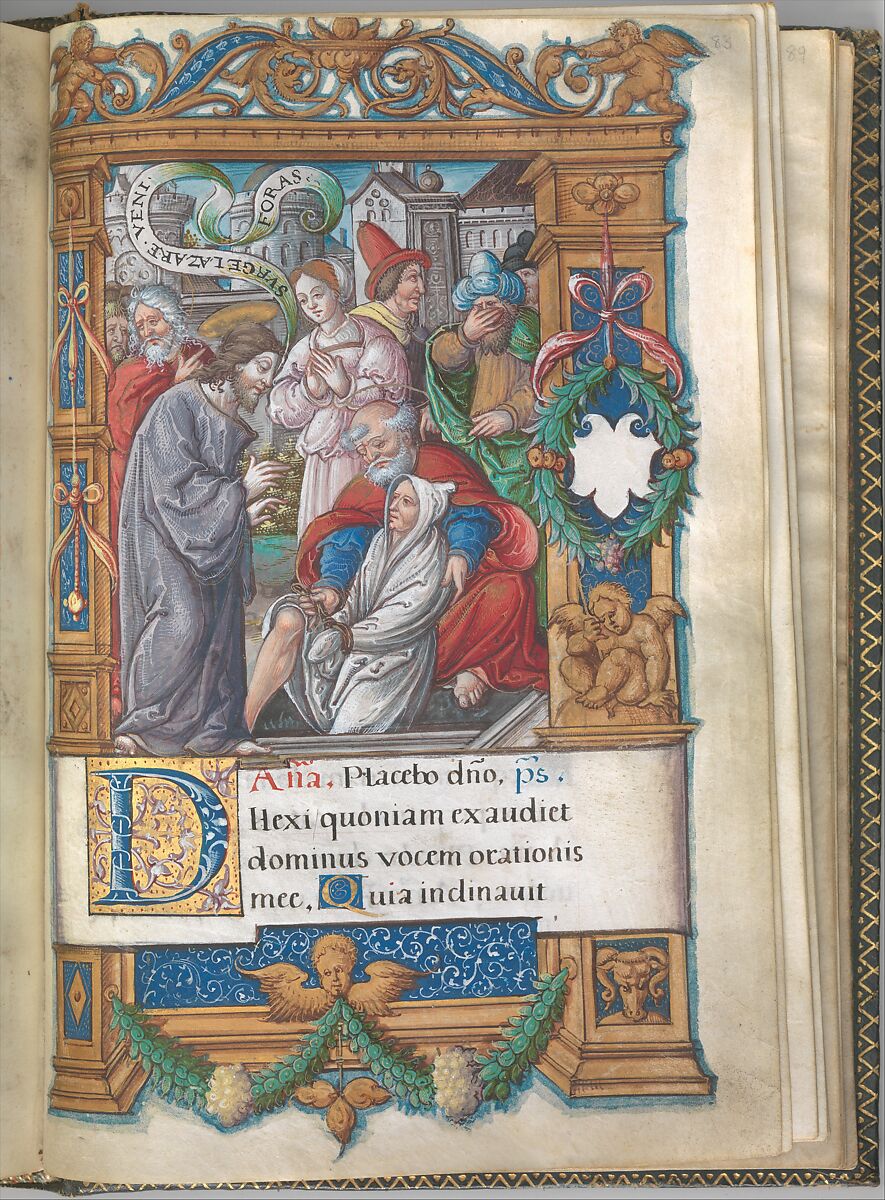 83
89
SVRGE LAZARE · VENI · FORAS ·
Aña. Placebo dño. ps.
DIlexi quoniam exaudiet
dominus vocem orationis
mee. Quia inclinauit